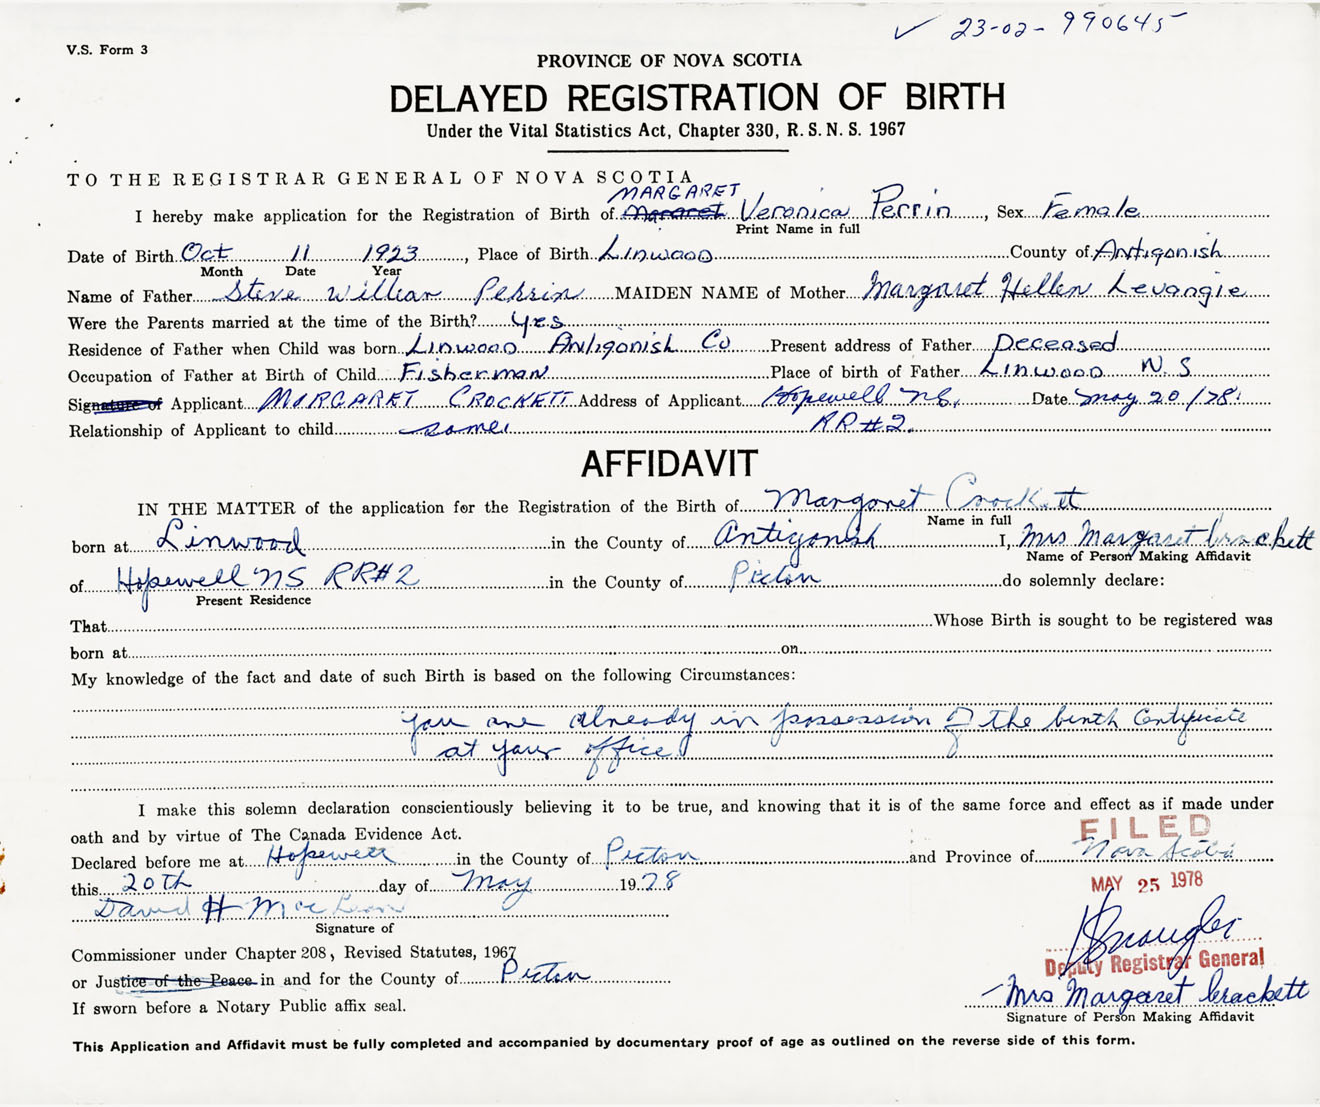 ✓ 23-02-990645
V.S. Form 3
PROVINCE OF NOVA SCOTIA
DELAYED REGISTRATION OF BIRTH
Under the Vital Statistics Act, Chapter 330, R.S.N.S. 1967
TO THE REGISTRAR GENERAL OF NOVA SCOTIA
MARGARET
I hereby make application for the Registration of Birth of Margaret Veronica Perrin, Sex Female
Print Name in full
Date of Birth Oct 11 1923, Place of Birth Linwood County of Antigonish
Month Date Year
Name of Father Steve William Perrin MAIDEN NAME of Mother Margaret Hellen Levangie
Were the Parents married at the time of the Birth? Yes
Residence of Father when Child was born Linwood Antigonish Co Present address of Father Deceased
Occupation of Father at Birth of Child Fisherman Place of birth of Father Linwood N.S
Signature of Applicant MARGARET CROCKETT Address of Applicant Hopewell NS. Date May 20/78.
Relationship of Applicant to child same. RR#2.
AFFIDAVIT
IN THE MATTER of the application for the Registration of the Birth of Margaret Crockett
Name in full
born at Linwood in the County of Antigonish I, Mrs Margaret Crockett
Name of Person Making Affidavit
of Hopewell NS RR#2 in the County of Pictou do solemnly declare:
Present Residence
That Whose Birth is sought to be registered was
born at on
My knowledge of the fact and date of such Birth is based on the following Circumstances:
You are already in possession of the birth Certificate
at your office
I make this solemn declaration conscientiously believing it to be true, and knowing that it is of the same force and effect as if made under
oath and by virtue of The Canada Evidence Act.
FILED
Declared before me at Hopewell in the County of Pictou and Province of Nova Scotia
this 20th day of May 1978
MAY 25 1978
David H MacLean
Signature of
Commissioner under Chapter 208, Revised Statutes, 1967
Deputy Registrar General
or Justice of the Peace in and for the County of Pictou
Mrs Margaret Crockett
If sworn before a Notary Public affix seal.
Signature of Person Making Affidavit
This Application and Affidavit must be fully completed and accompanied by documentary proof of age as outlined on the reverse side of this form.